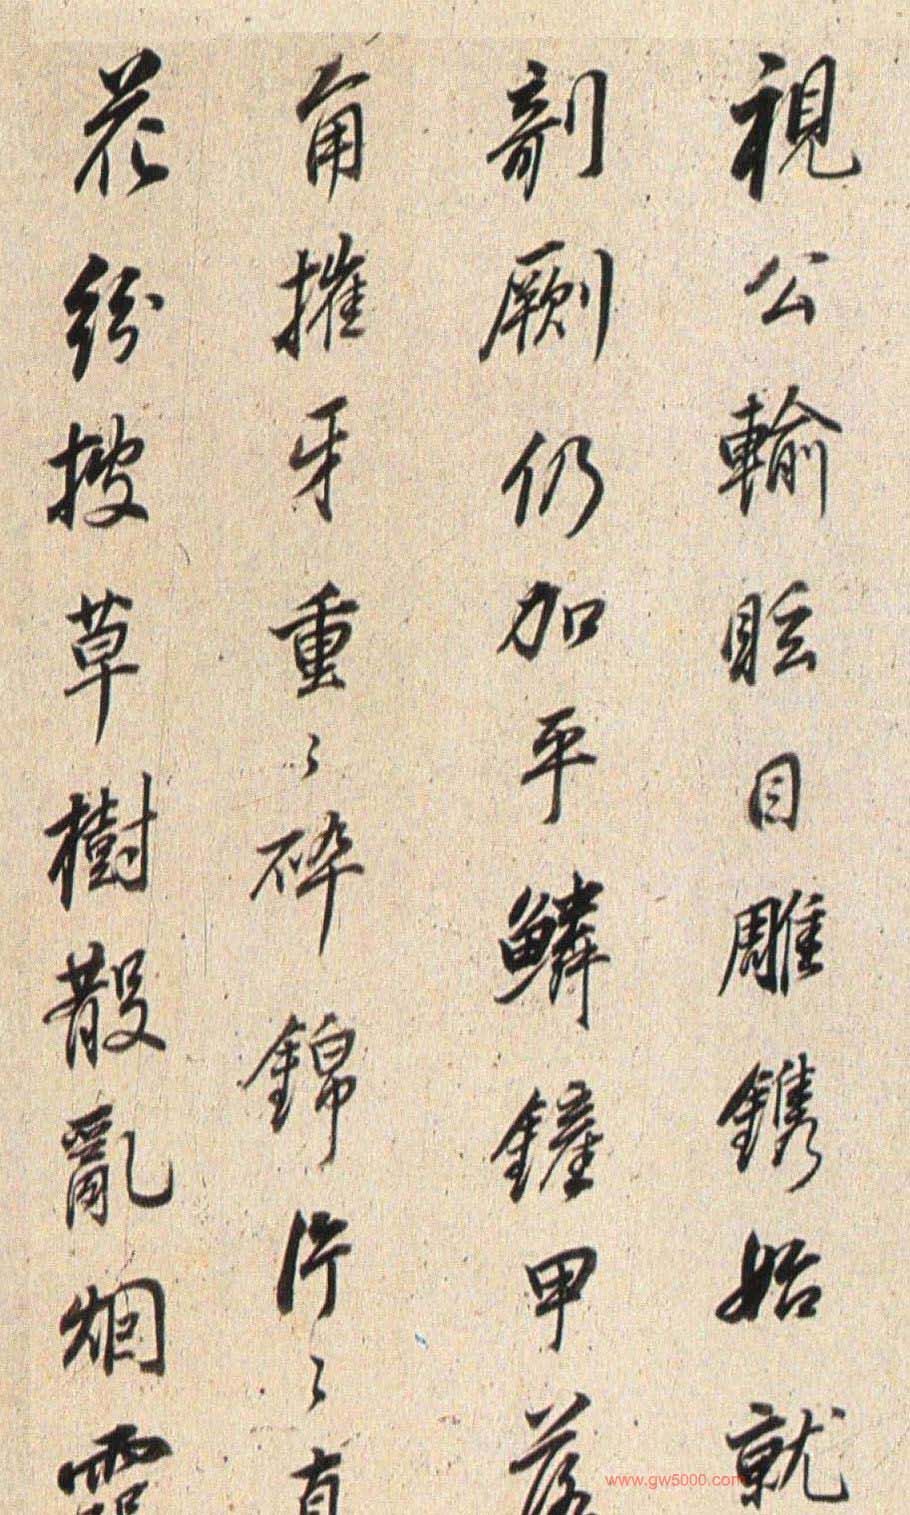 視公輸眩目雕鐫始就
剞劂仍加平鱗鏟甲落
角摧牙重〻碎錦片〻真
花紛披草樹散亂烟霞
www.gw5000.com